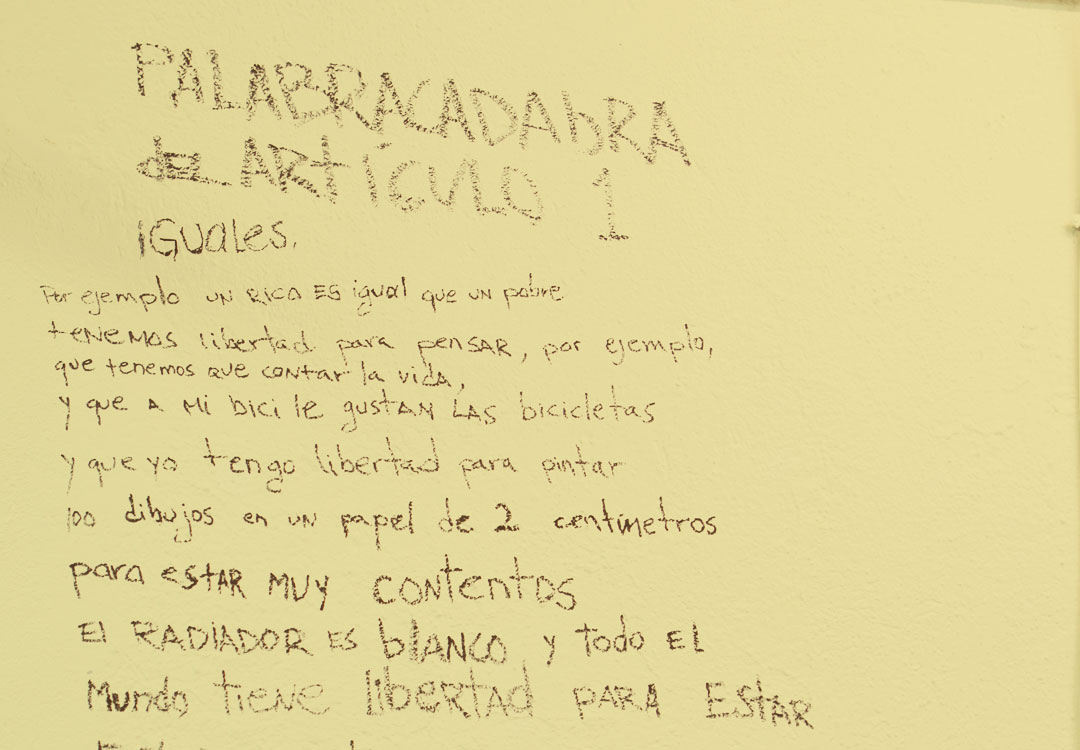 PALABRACADAbRA
dEL ARtÍCULO 1
iGUaLes.
Por ejemplo UN RICO ES igual que un pobre
teNeMOS libertad para penSAR, por ejemplo,
que tenemos que contar la vida,
y que A Mi bici le gustAN LAS bicicletas
y que yo tengo libertad para pintar
100 dibujos en UN papel de 2 centímetros
para estAR MUY CONtentOS
El RADIADOR ES blANCO y todo EL
Mundo tiene libERtad PARA EStAR